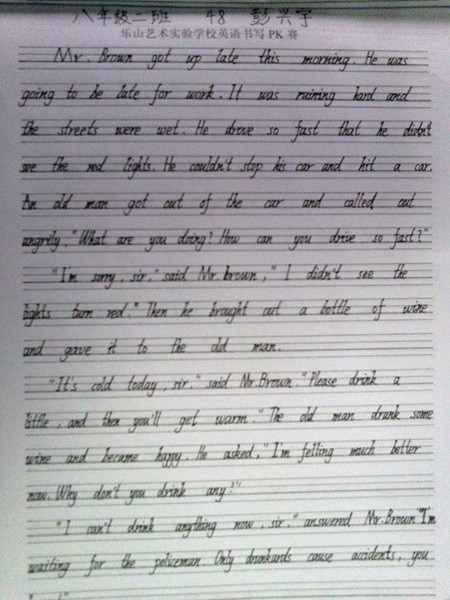 八年级二班 48 彭兴宇
乐山艺术实验学校英语书写 PK 赛
Mr. Brown got up late this morning. He was
going to be late for work. It was raining hard and
the streets were wet. He drove so fast that he didn't
see the red lights. He couldn't stop his car and hit a car.
An old man got out of the car and called out
angrily, "What are you doing? How can you drive so fast?"
"I'm sorry, sir," said Mr. brown, "I didn't see the
lights turn red." Then he brought out a bottle of wine
and gave it to the old man.
"It's cold today, sir." said Mr. Brown. "Please drink a
little, and then you'll get warm." The old man drank some
wine and became happy. He asked, "I'm felling much better
now. Why don't you drink any?"
"I can't drink anything now, sir." answered Mr. Brown "I'm
waiting for the policeman. Only drunkards cause accidents, you